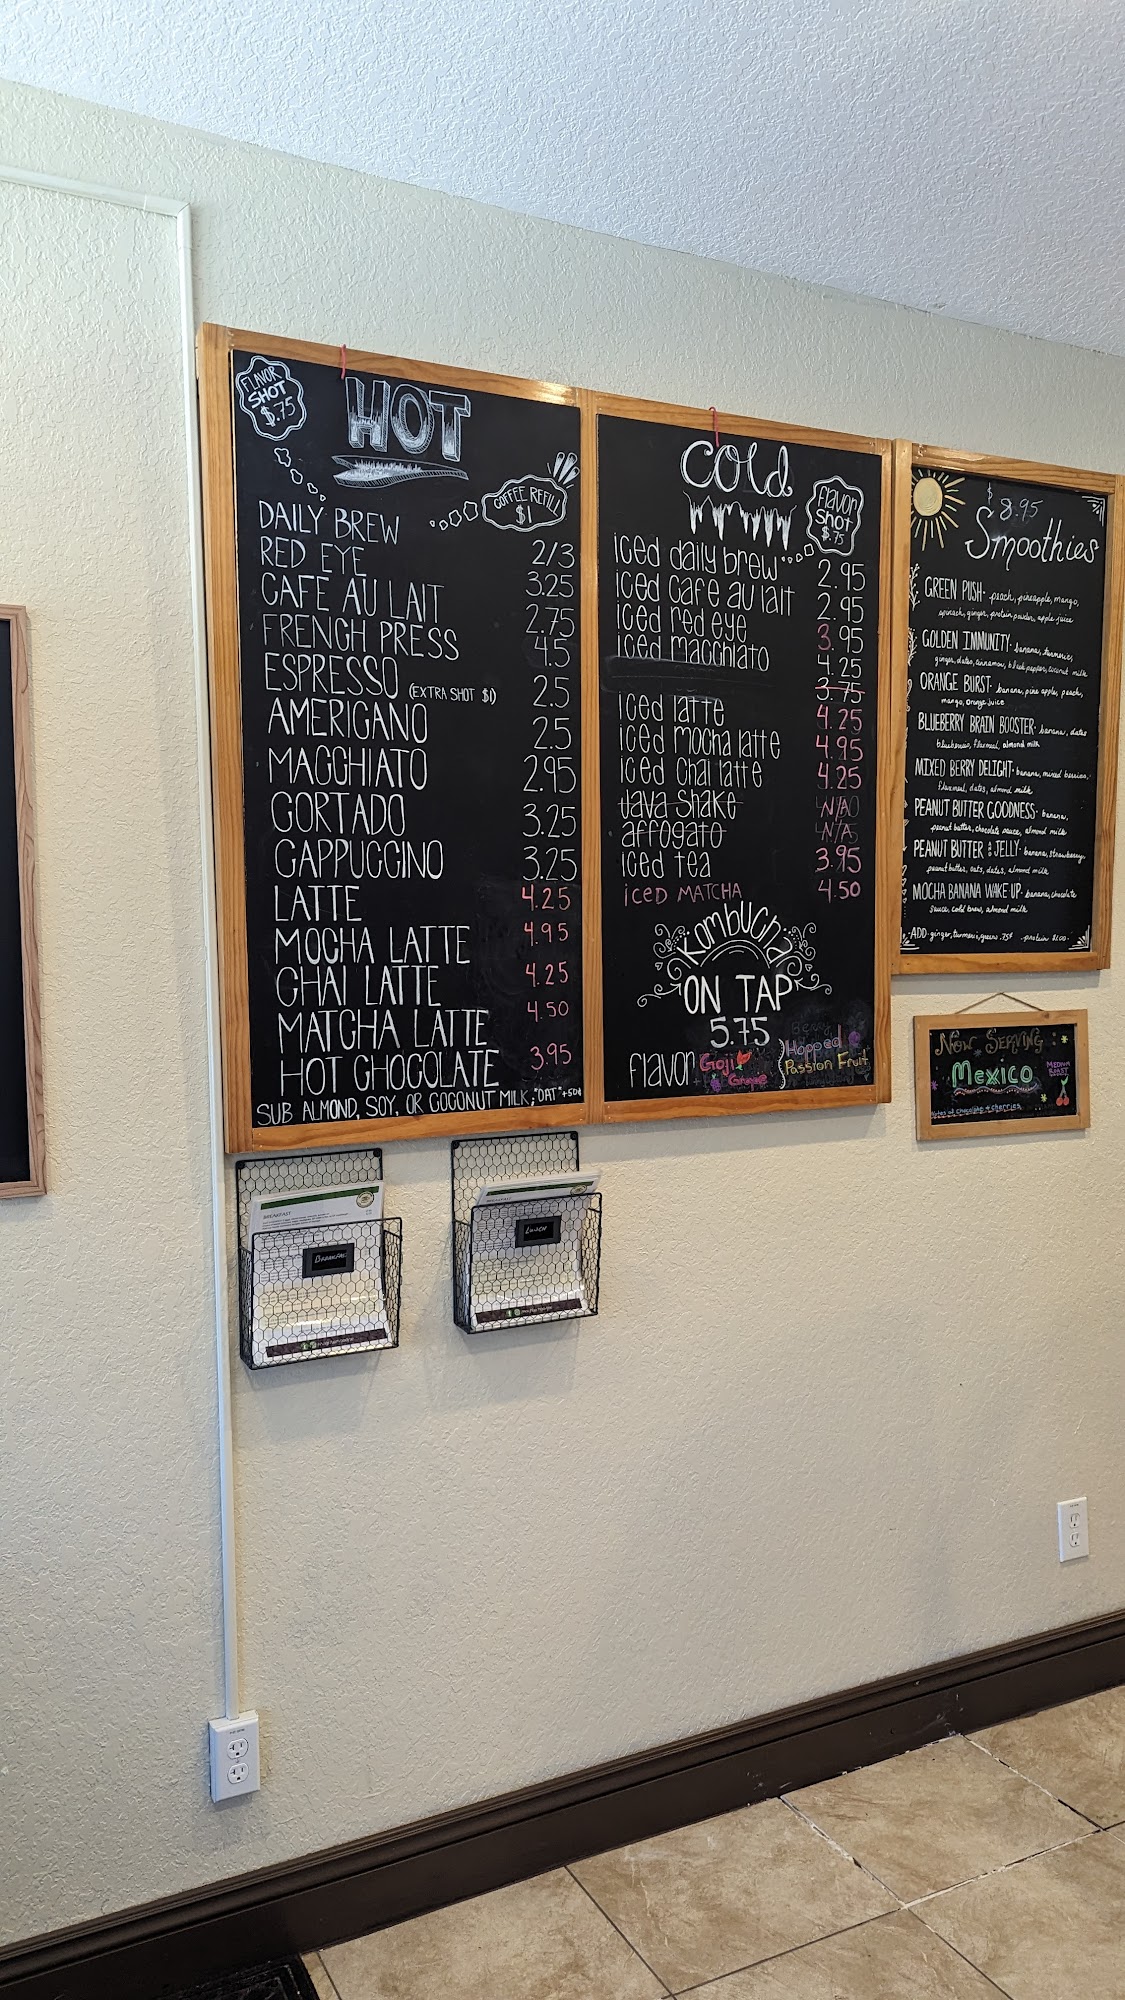 FLAVOR
SHOT
$.75
HOT
COFFEE REFILL
$1
DAILY BREW 2/3
RED EYE 3.25
CAFE AU LAIT 2.75
FRENCH PRESS 4.5
ESPRESSO (EXTRA SHOT $1) 2.5
AMERICANO 2.5
MACCHIATO 2.95
CORTADO 3.25
CAPPUCCINO 3.25
LATTE 4.25
MOCHA LATTE 4.95
CHAI LATTE 4.25
MATCHA LATTE 4.50
HOT CHOCOLATE 3.95
SUB ALMOND, SOY, OR COCONUT MILK, "OAT" +50¢
cold
flavor
shot
$.75
iced daily brew 2.95
iced cafe au lait 2.95
iced red eye 3.95
iced macchiato 4.25
3.75
iced latte 4.25
iced mocha latte 4.95
iced chai latte 4.25
Java Shake N/A
affogato N/A
iced tea 3.95
iced MATCHA 4.50
Kombucha
ON TAP
5.75
flavor Goji Grape Hopped Passion Fruit
$8.95
Smoothies
GREEN PUSH- peach, pineapple, mango,
spinach, ginger, protein powder, apple juice
GOLDEN IMMUNITY- banana, turmeric,
ginger, dates, cinnamon, black pepper, coconut milk
ORANGE BURST- banana, pine apple, peach,
mango, orange juice
BLUEBERRY BRAIN BOOSTER- banana, dates
blueberries, flaxmeal, almond milk
MIXED BERRY DELIGHT- banana, mixed berries,
flaxmeal, dates, almond milk
PEANUT BUTTER GOODNESS- banana,
peanut butter, chocolate sauce, almond milk
PEANUT BUTTER AND JELLY- banana, strawberry,
peanut butter, oats, dates, almond milk
MOCHA BANANA WAKE UP- banana, chocolate
sauce, cold brew, almond milk
ADD- ginger, turmeric, greens .75¢ protein $1.00
NOW SERVING
MEXICO
MEDIUM
ROAST
Notes of chocolate + cherries
BREAKFAST
BREAKFAST
BREAKFAST
LUNCH